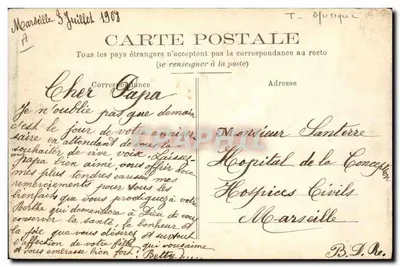 Marseille 8 Juillet 1908
T - Musique
A
CARTE POSTALE
Tous les pays étrangers n'acceptent pas la correspondance au recto
(se renseigner à la poste)
Correspondance
Adresse
Cher Papa
Je n'oublie pas que demain
c'est le jour de votre anniver
saire en attendant de vous la
souhaiter de vive voix. Laissez
papa bien aimé, vous offrir avec
mes plus tendres caresses mes
remerciements pour tous les
bienfaits que vous prodiguez à votre
Berthe qui demandera à Dieu de vous
conserver la santé, le bonheur et
la joie que vous désirez et surtout
l'affection de votre fille qui vous aime
et vous embrasse bien fort. Betty
Monsieur Santerre
Hopital de la Conception
Hospices Civils
Marseille
B. D. R.